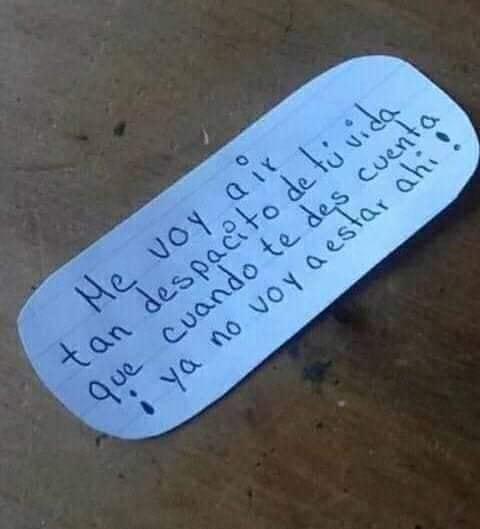 Me voy a ir
tan despacito de tú vida
que cuando te des cuenta
¡ ya no voy a estar ahi !